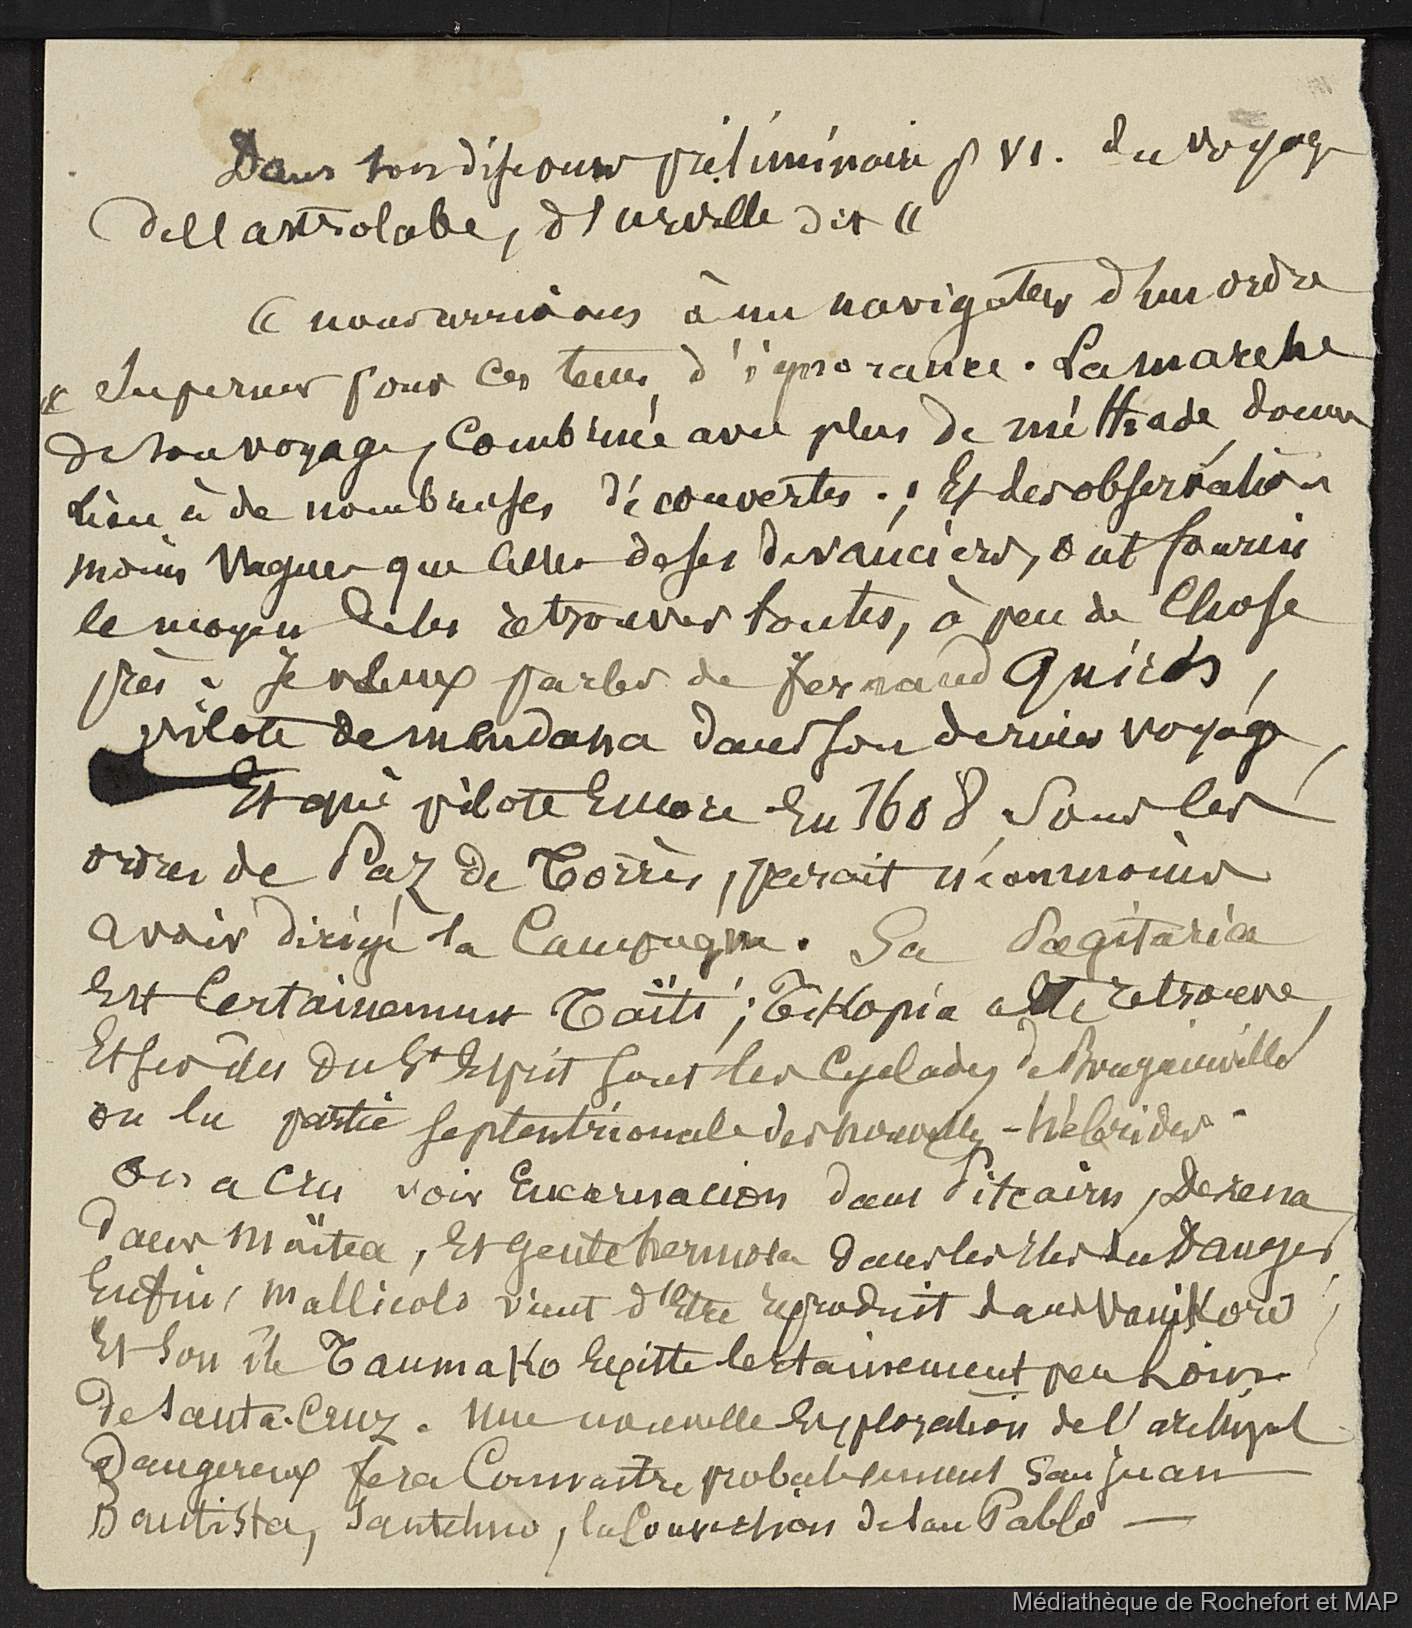 Dans son discours préliminaire p VI. du voyage
de l'astrolabe, d'urville dit "
" nous arrivons à un navigateur d'un ordre
" superieur pour ces tems d'ignorance. La marche
de son voyage, combinée avec plus de méthode, donna
lieu à de nombreuses découvertes ; Et des observations
moins vagues que celles de ses devanciers, ont fourni
le moyen de les retrouver toutes, à peu de chose
près. Je veux parler de fernand Quiros,
pilote de mendana dans son dernier voyage,
Et qui pilote Encore En 1608 sous les
ordres de Paz de Torrès, parait néonmoins
avoir dirigé la Campagne. Sa Sagitaria
Est Certainement Taïti ; Tikopia a été retrouvé,
Et ses îles du St Esprit sont les Cyclades de Bougainville
ou la partie septentrionale des nouvelles-hébrides.
on a cru voir Encarnacion dans Pitcairn, Dezena
dans Maïtea, Et gente hermosa dans les Iles du Danger
Enfin, mallicolo vient d'Etre reproduit dans Vanikoro,
Et son île Taumako Existe Certainement peu loin
de santa-Cruz. une nouvelle Exploration de l'archipel
Dangereux fera Connaitre probablement San juan
Bautista, Santelmo, la Conversion de san Pablo —
Médiathèque de Rochefort et MAP